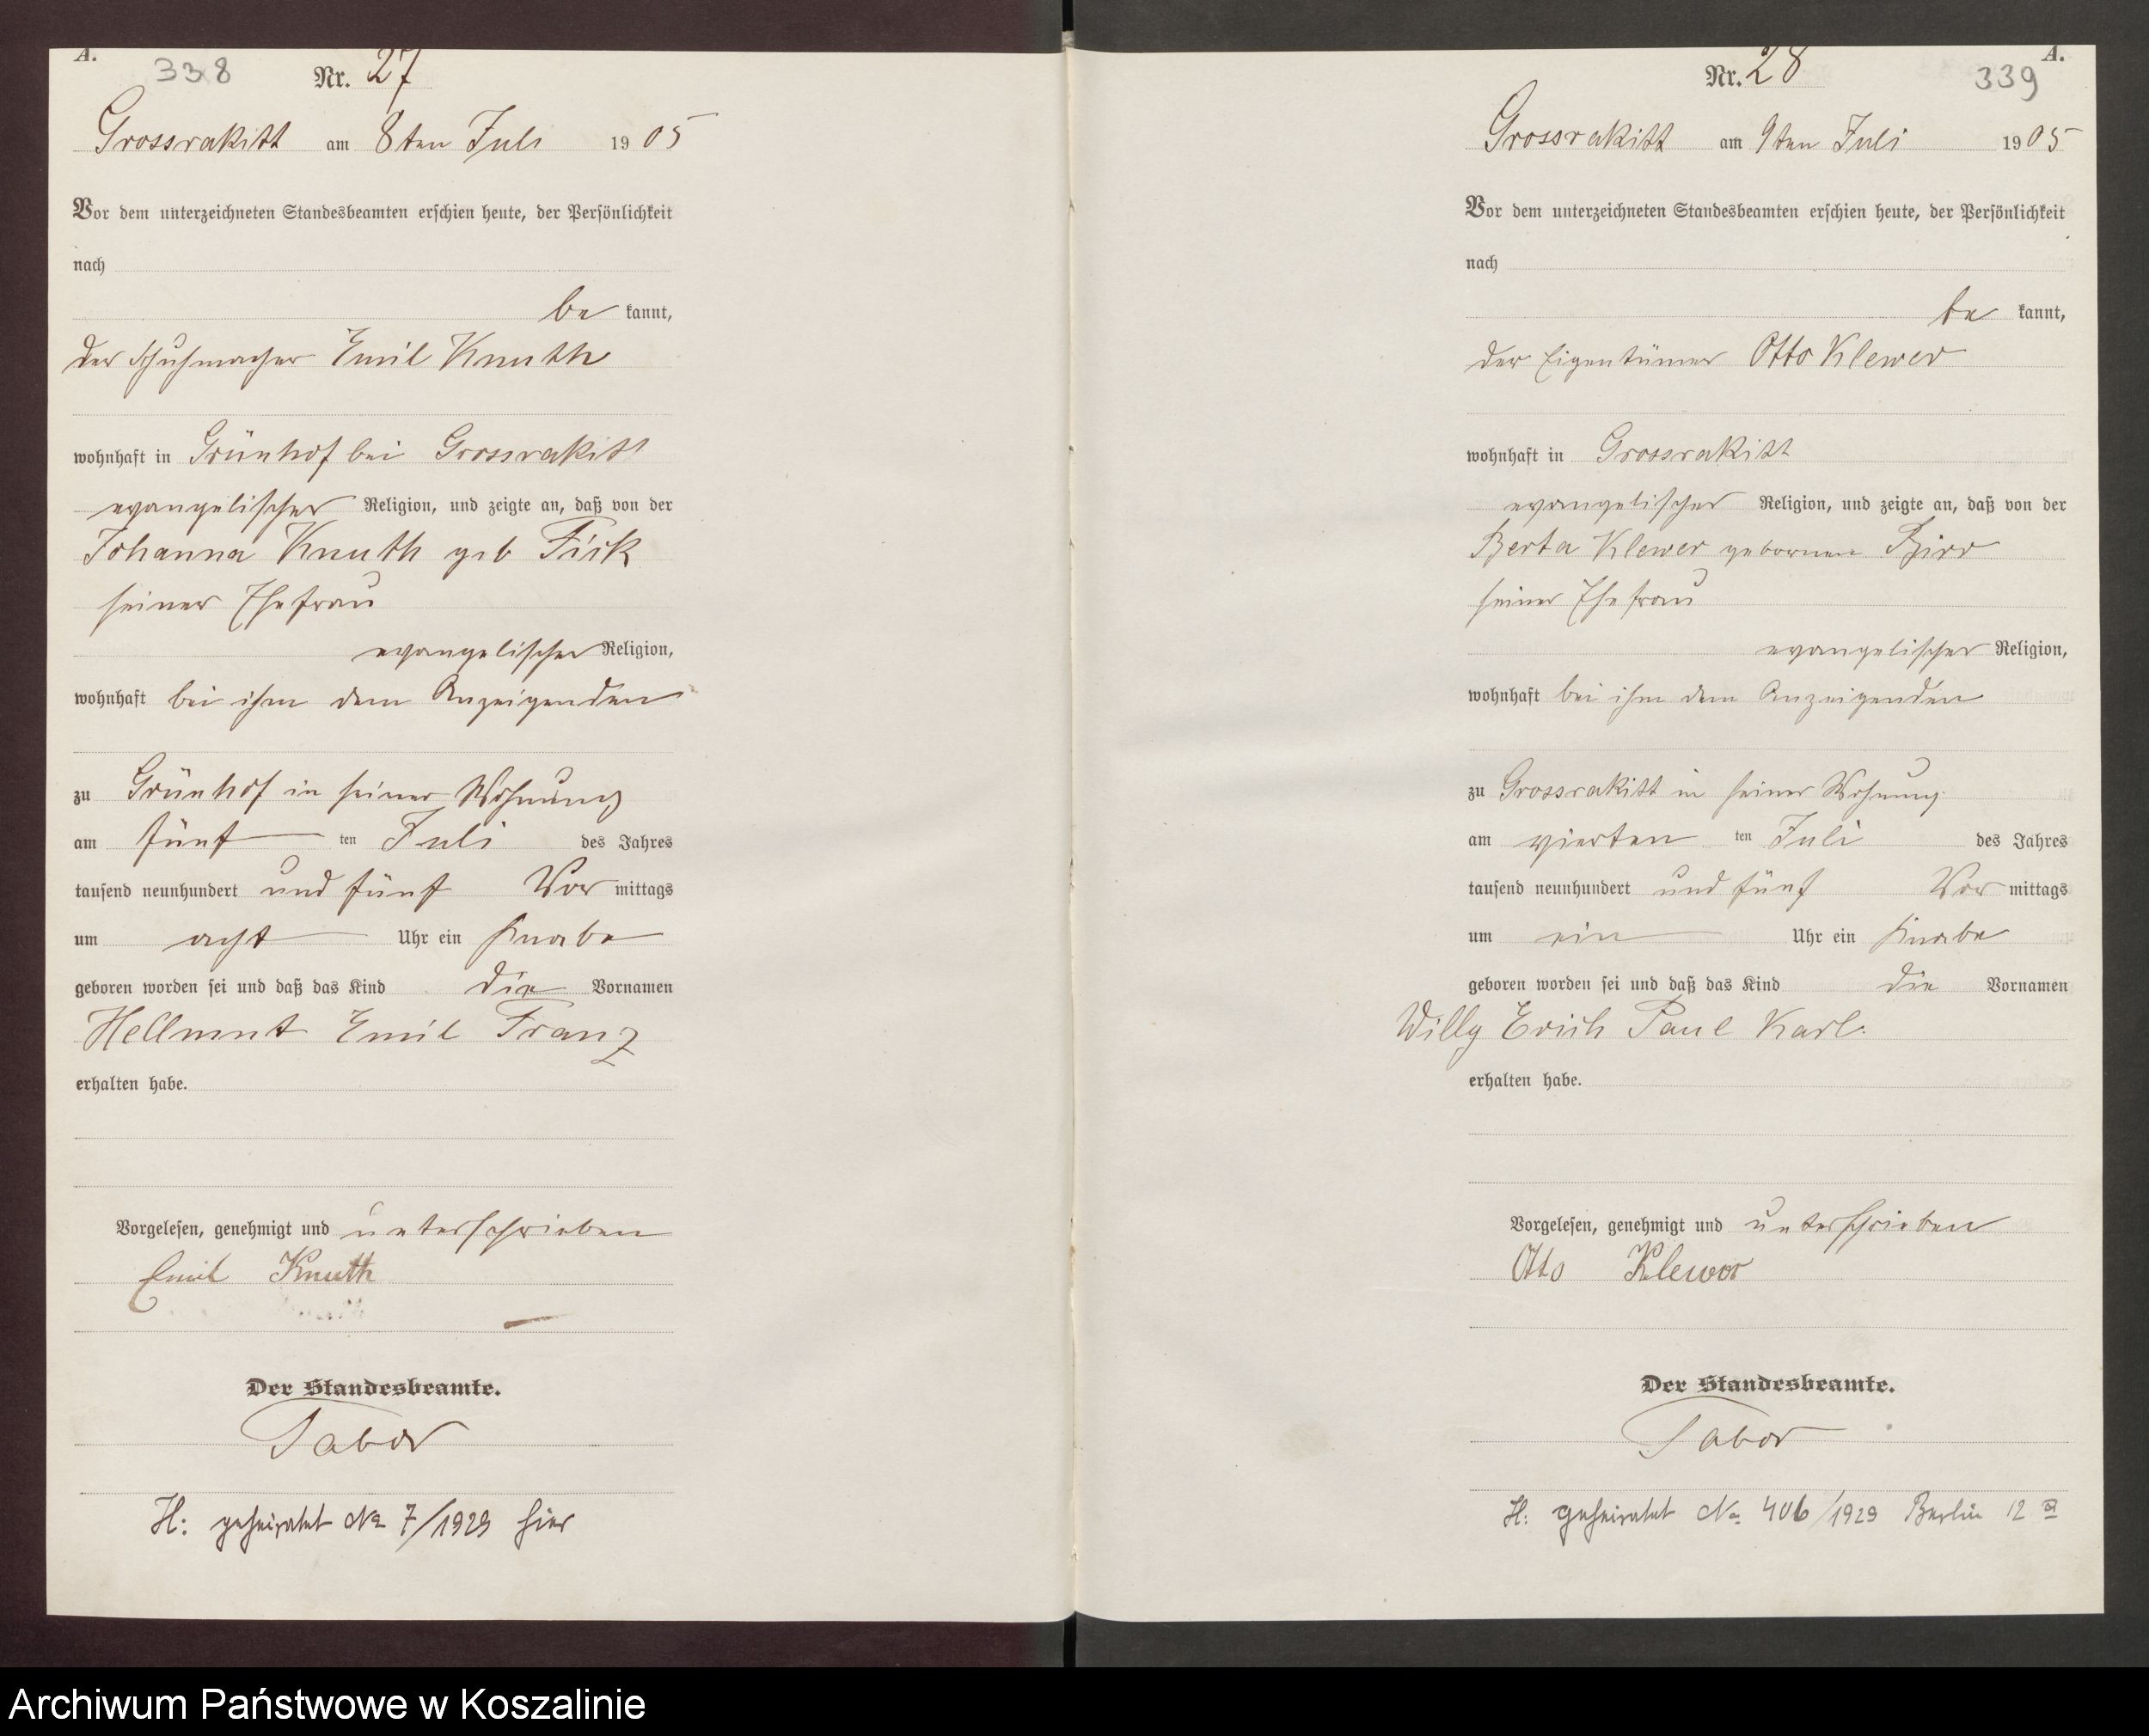 A.
338
Nr. 27
Grossrakitt am 8ten Juli 1905
Vor dem unterzeichneten Standesbeamten erschien heute, der Persönlichkeit
nach
be kannt,
der Schuhmacher Emil Knuth
wohnhaft in Grünhof bei Grossrakitt
evangelischer Religion, und zeigte an, daß von der
Johanna Knuth geb Fick
seiner Ehefrau
evangelischer Religion,
wohnhaft bei ihm dem Anzeigenden
zu Grünhof in seiner Wohnung
am fünf ten Juli des Jahres
tausend neunhundert und fünf Vor mittags
um acht Uhr ein Knabe
geboren worden sei und daß das Kind die Vornamen
Hellmut Emil Franz
erhalten habe.
Vorgelesen, genehmigt und unterschrieben
Emil Knuth
Der Standesbeamte.
Tabor
H: geheiratet No 7/1929 hier
A.
339
Nr. 28
Grossrakitt am 9ten Juli 1905
Vor dem unterzeichneten Standesbeamten erschien heute, der Persönlichkeit
nach
be kannt,
der Eigentümer Otto Klewer
wohnhaft in Grossrakitt
evangelischer Religion, und zeigte an, daß von der
Berta Klewer gebornen
seiner Ehefrau
evangelischer Religion,
wohnhaft bei ihm dem Anzeigenden
zu Grossrakitt in seiner Wohnung
am vierten ten Juli des Jahres
tausend neunhundert und fünf Vor mittags
um ein Uhr ein Knabe
geboren worden sei und daß das Kind die Vornamen
Willy Erich Paul Karl.
erhalten habe.
Vorgelesen, genehmigt und unterschrieben
Otto Klewer
Der Standesbeamte.
Tabor
H: geheiratet No 406/1929 Berlin 12 a
Archiwum Państwowe w Koszalinie